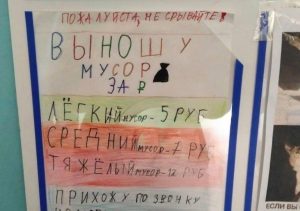 ПОЖАЛУЙСТА, НЕ СРЫВАЙТЕ!
ВЫНОШУ
МУСОР
ЗА ₽
ЛЁГКИЙ МУСОР - 5 РУБ
СРЕДНИЙ МУСОР - 7 РУБ
ТЯЖЁЛЫЙ МУСОР - 12 РУБ
ПРИХОЖУ ПО ЗВОНКУ
ЕСЛИ ВЫ